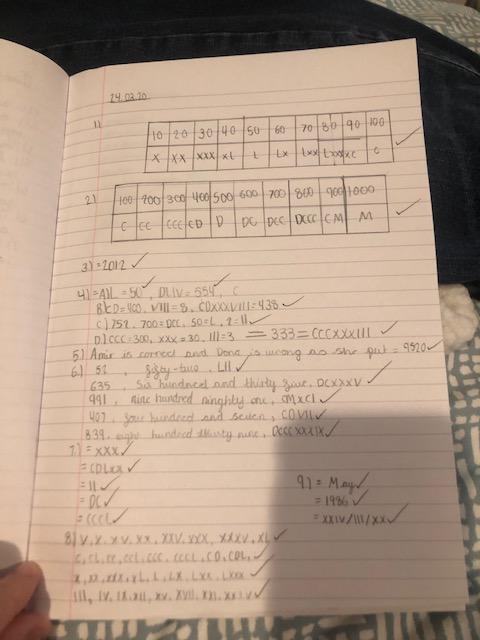 24.03.20
1)
10 20 30 40 50 60 70 80 90 100
X XX XXX XL L LX LXX LXXX XC C
2)
100 200 300 400 500 600 700 800 900 1000
C CC CCC CD D DC DCC DCCC CM M
3) = 2012
4) = A) L = 50, DLIV = 554, C
B) CD = 400, VIII = 8, CDXXXVIII = 438
C) 752, 700 = DCC, 50 = L, 2 = II
D) CCC = 300, XXX = 30, III = 3 = 333 = CCCXXXIII
5) Amir is correct and Dora is wrong as she put = 9520
6) 52, fifty-two, LII
635, Six hundred and thirty five, DCXXXV
991, nine hundred ninghty one, CMXCI
407, four hundred and seven, CDVII
839, eight hundred thirty nine, DCCCXXXIX
7) = XXX
= CDLXX
= II
= DC
= CCCL
9) = May
= 1986
= XXIV/III/XX
8) V, X, XV, XX, XXV, XXX, XXXV, XL
C, CL, CC, CCL, CCC, CCCL, CD, CDL,
X, XX, XXX, XL, L, LX, LXX, LXXX
III, IV, IX, XII, XV, XVII, XXI, XXIV